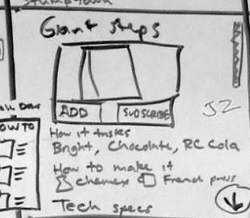 Stumptown
Giant Steps
ADD
SUBSCRIBE
How it tastes
Bright, Chocolate, RC Cola
How to make it
Chemex French press
Tech specs